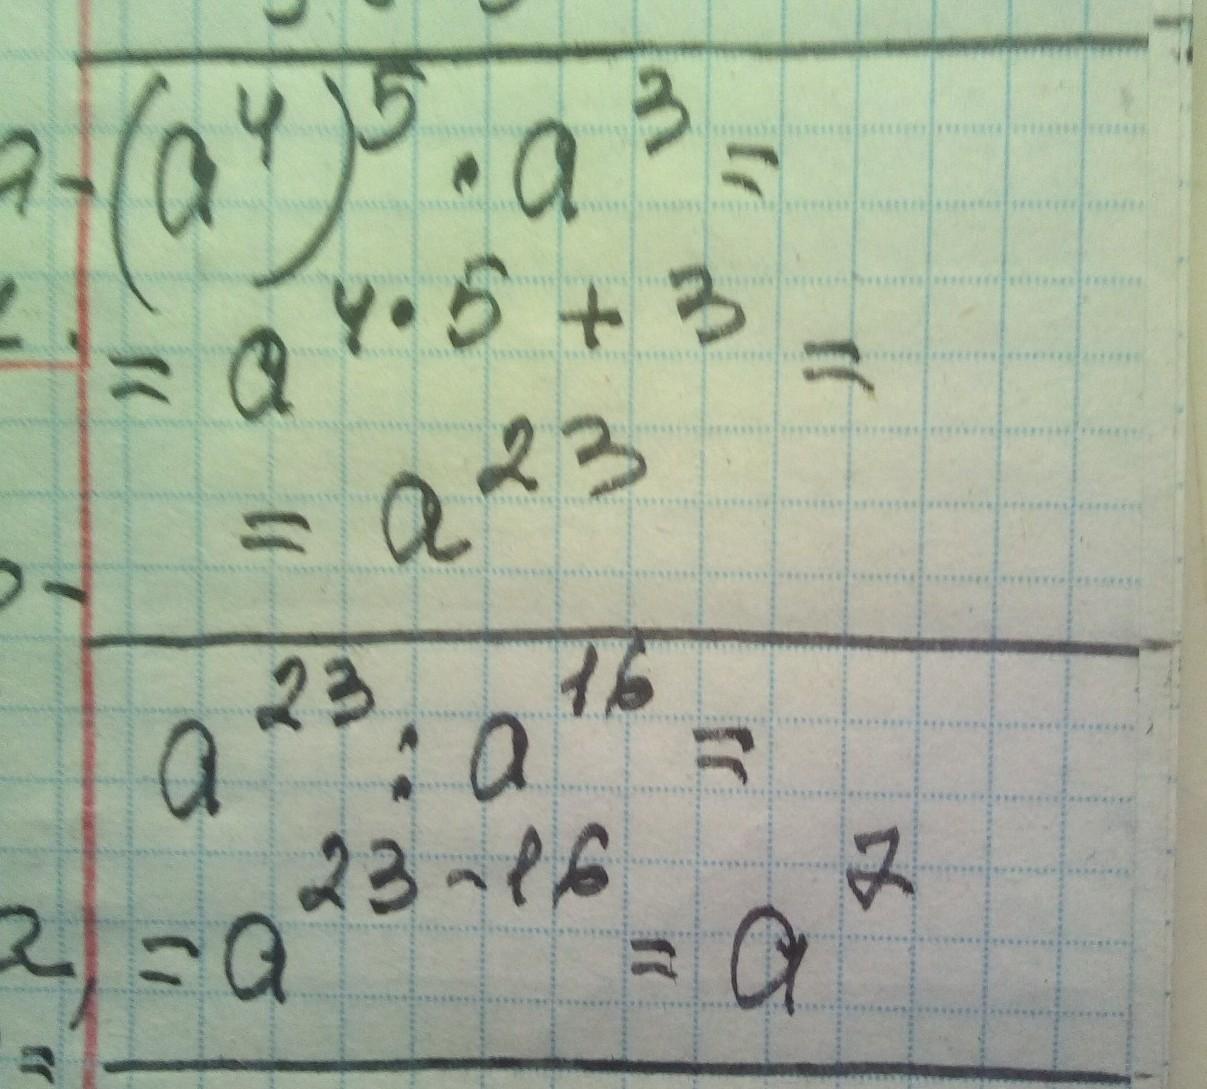 (a⁴)⁵ · a³ =
= a⁴·⁵ ⁺ ³ =
= a²³
a²³ : a¹⁶ =
= a²³⁻¹⁶ = a⁷